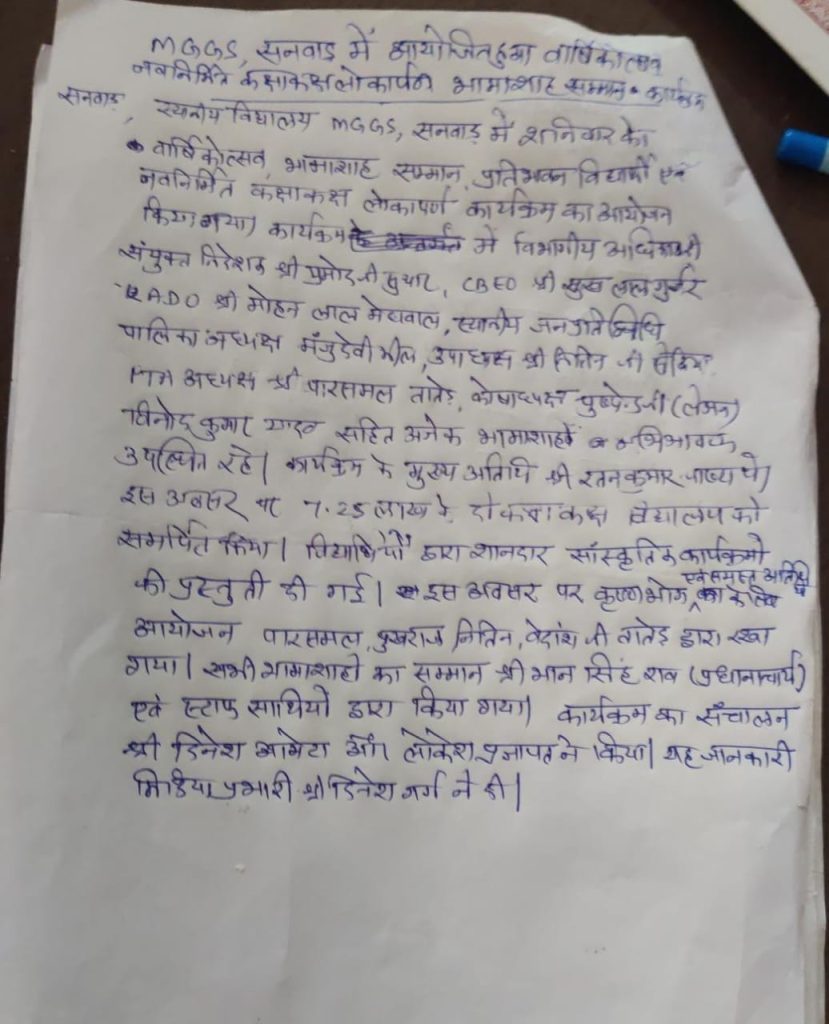 MGGS, सनवाड़ में आयोजित हुआ वार्षिकोत्सव
नवनिर्मित कक्षाकक्ष लोकार्पण भामाशाह सम्मान कार्यक्रम
सनवाड़, स्थानीय विद्यालय MGGS, सनवाड़ में शनिवार को
वार्षिकोत्सव, भामाशाह सम्मान, प्रतिभावान विद्यार्थी एवं
नवनिर्मित कक्षाकक्ष लोकापर्ण कार्यक्रम का आयोजन
किया गया। कार्यक्रम में विभागीय अधिकारी
संयुक्त निदेशक श्री प्रमोद जी सुथार, CBEO श्री सुख लाल गुर्जर
RADO श्री मोहन लाल मेघवाल, स्थानीय जनप्रतिनिधि
पालिका अध्यक्ष मंजुदेवी भील, उपाध्यक्ष श्री नितिन जी सेठिया
PTM अध्यक्ष श्री पारसमल तातेड़, कोषाध्यक्ष
विनोद कुमार यादव सहित अनेक भामाशाह व अभिभावक
उपस्थित रहे। कार्यक्रम के मुख्य अतिथि श्री रतन कुमार थे।
इस अवसर पर 7.25 लाख के दो कक्षा कक्ष विद्यालय को
समर्पित किया। विद्यार्थियों द्वारा शानदार सांस्कृतिक कार्यक्रमो
की प्रस्तुती दी गई। इस अवसर पर कृष्णभोग एवं समस्त अतिथि के लिए
आयोजन पारसमल, पुखराज, नितिन, वेदांश जी तातेड़ द्वारा रखा
गया। सभी भामाशाहो का सम्मान श्री भान सिंह राव (प्रधानाचार्य)
एवं स्टाफ साथियो द्वारा किया गया। कार्यक्रम का संचालन
श्री दिनेश आमेटा और लोकेश प्रजापत ने किया। यह जानकारी
मिडिया प्रभारी श्री दिनेश गर्ग ने दी।